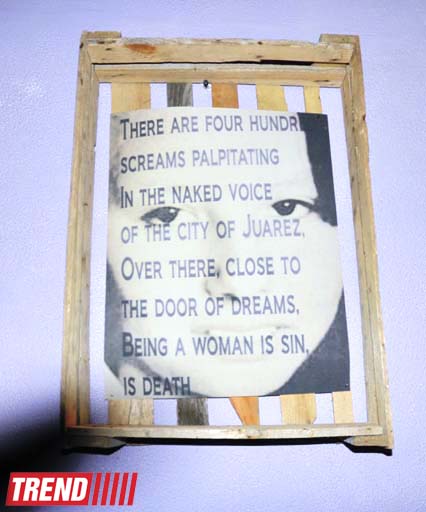 THERE ARE FOUR HUNDR
SCREAMS PALPITATING
IN THE NAKED VOICE
OF THE CITY OF JUAREZ,
OVER THERE, CLOSE TO
THE DOOR OF DREAMS,
BEING A WOMAN IS SIN,
IS DEATH
TREND